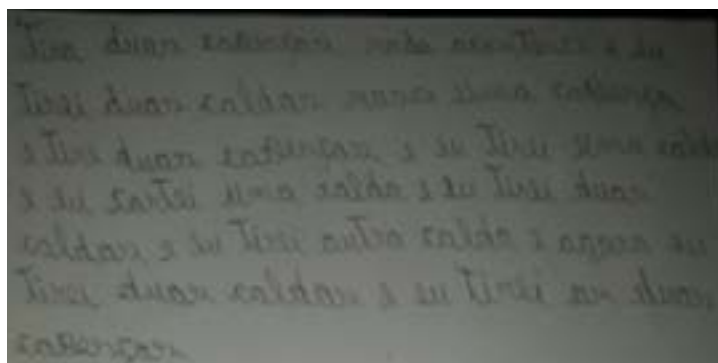 Tirei duas cabeças nada aconteceu e eu
Tirei duas caldas nasceu uma cabeça
e Tirei duas cabeças e eu Tirei uma calda
e eu cortei uma calda e eu Tirei duas
caldas e eu Tirei outra calda e agora eu
Tirei duas caldas e eu Tirei as duas
cabeças